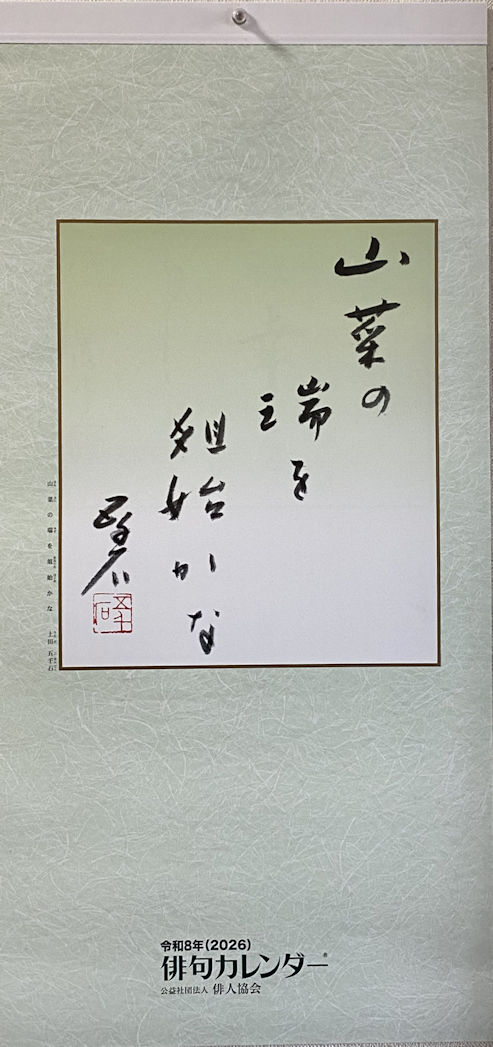 山菜の
瑞を
俎始かな
五千石
山菜の瑞を俎始かな 上田五千石
令和8年(2026)
俳句カレンダー®
公益社団法人 俳人協会